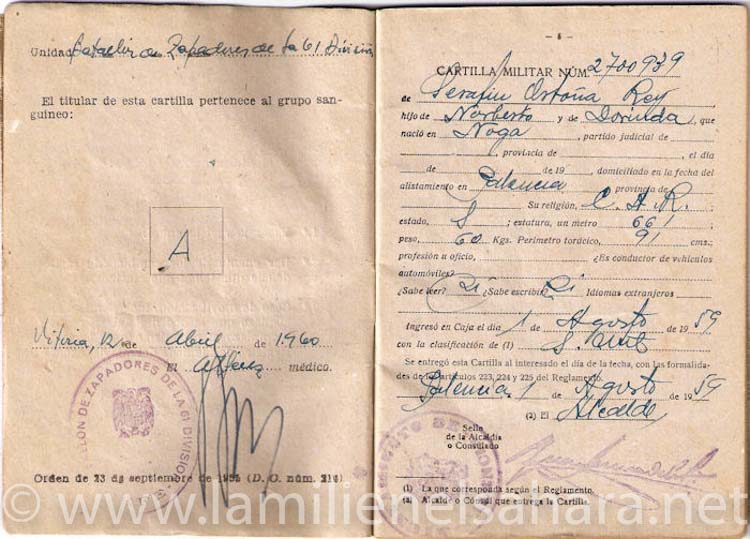 Unidad Batallón Zapadores de la 61 División
El titular de esta cartilla pertenece al grupo san-
guíneo:
A
Vitoria, 12 de Abril de 1.960
El Alférez médico.
BATALLON DE ZAPADORES DE LA 61 DIVISION
Orden de 23 de septiembre de (D. O. núm. 214)
CARTILLA MILITAR NÚM. 2700939
de Serafin Rey
hijo de Norberto y de Dorinda, que
nació en Noga, partido judicial de
, provincia de , el día
de de 19 , domiciliado en la fecha del
alistamiento en Palencia provincia de
Su religión, C. A. R.;
estado, S ; estatura, un metro 661;
peso, 60 Kgs. Perímetro torácico, 91 cms.;
profesión u oficio, ¿Es conductor de vehículos
automóviles?
¿Sabe leer? Si ¿Sabe escribir? Si Idiomas extranjeros
Ingresó en Caja el día 1 de Agosto de 1959
con la clasificación de (1) S.
Se entregó esta Cartilla al interesado el día de la fecha, con las formalida-
des de los artículos 223, 224 y 225 del Reglamento.
Palencia, 1 de Agosto de 1959
(2) El Alcalde
Sello
de la Alcaldía
o Consulado
(1) La que corresponda según el Reglamento.
(2) Alcalde o Cónsul que entrega la Cartilla.
© www.lamilienelsahara.net